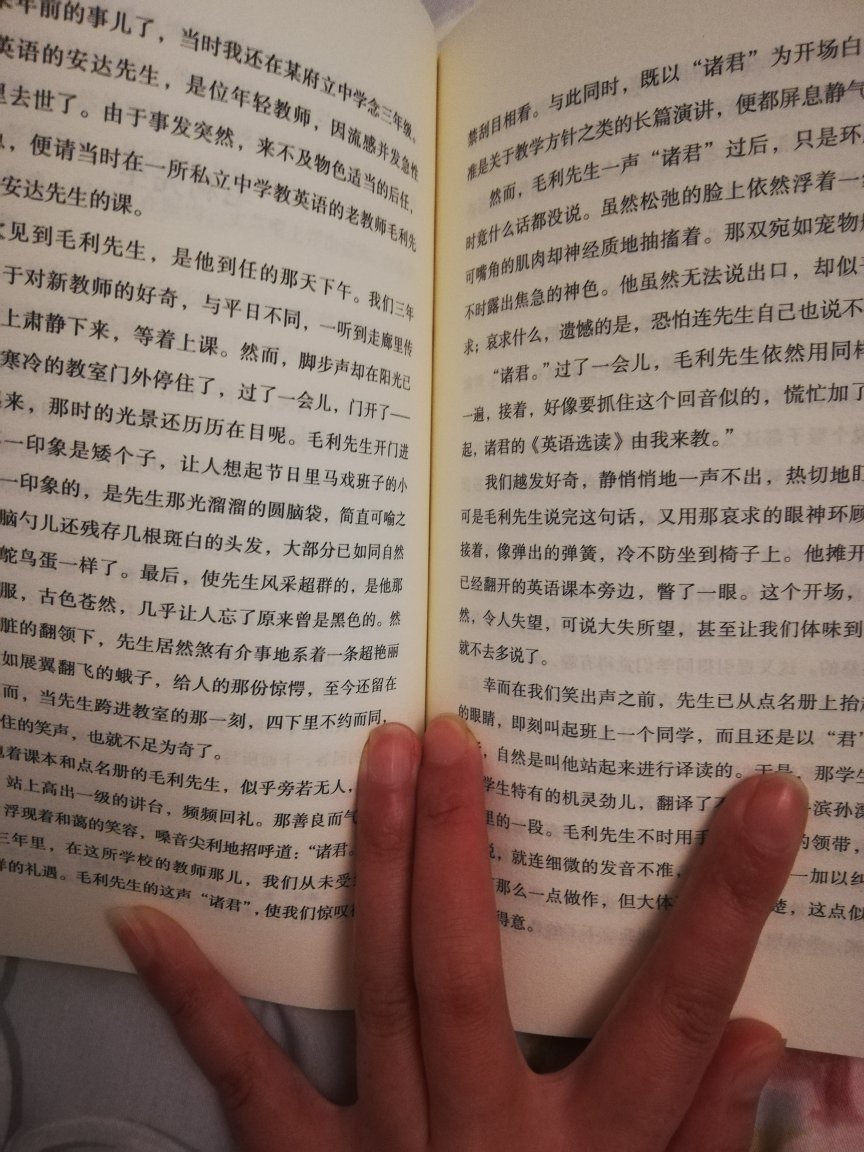 年前的事儿了，当时我还在某府立中学念三年级。
英语的安达先生，是位年轻教师，因流感并发急性
里去世了。由于事发突然，来不及物色适当的后任，
，便请当时在一所私立中学教英语的老教师毛利先
安达先生的课。
见到毛利先生，是他到任的那天下午。我们三年
于对新教师的好奇，与平日不同，一听到走廊里传
上肃静下来，等着上课。然而，脚步声却在阳光已
寒冷的教室门外停住了，过了一会儿，门开了——
来，那时的光景还历历在目呢。毛利先生开门进
一印象是矮个子，让人想起节日里马戏班子的小
一印象的，是先生那光溜溜的圆脑袋，简直可喻之
脑勺儿还残存几根斑白的头发，大部分已如同自然
鸵鸟蛋一样了。最后，使先生风采超群的，是他那
服，古色苍然，几乎让人忘了原来曾是黑色的。然
脏的翻领下，先生居然煞有介事地系着一条超艳丽
如展翼翻飞的蛾子，给人的那份惊愕，至今还留在
而，当先生跨进教室的那一刻，四下里不约而同，
住的笑声，也就不足为奇了。
着课本和点名册的毛利先生，似乎旁若无人，
站上高出一级的讲台，频频回礼。那善良而气
浮现着和蔼的笑容，嗓音尖利地招呼道：“诸君。
三年里，在这所学校的教师那儿，我们从未受
样的礼遇。毛利先生的这声“诸君”，使我们惊叹
禁刮目相看。与此同时，既以“诸君”为开场白
准是关于教学方针之类的长篇演讲，便都屏息静气
然而，毛利先生一声“诸君”过后，只是环
时竟什么话都没说。虽然松弛的脸上依然浮着一
可嘴角的肌肉却神经质地抽搐着。那双宛如宠物
不时露出焦急的神色。他虽然无法说出口，却似
求；哀求什么，遗憾的是，恐怕连先生自己也说不
“诸君。”过了一会儿，毛利先生依然用同样
一遍，接着，好像要抓住这个回音似的，慌忙加了
起，诸君的《英语选读》由我来教。”
我们越发好奇，静悄悄地一声不出，热切地盯
可是毛利先生说完这句话，又用那哀求的眼神环顾
接着，像弹出的弹簧，冷不防坐到椅子上。他摊开
已经翻开的英语课本旁边，瞥了一眼。这个开场，
然，令人失望，可说大失所望，甚至让我们体味到
就不去多说了。
幸而在我们笑出声之前，先生已从点名册上抬起
的眼睛，即刻叫起班上一个同学，而且还是以“君”
，自然是叫他站起来进行译读的。于是，那学生
学生特有的机灵劲儿，翻译了 滨孙漂
里的一段。毛利先生不时用手 的领带，
说，就连细微的发音不准， 一加以纠
那么一点做作，但大体 楚，这点似
得意。